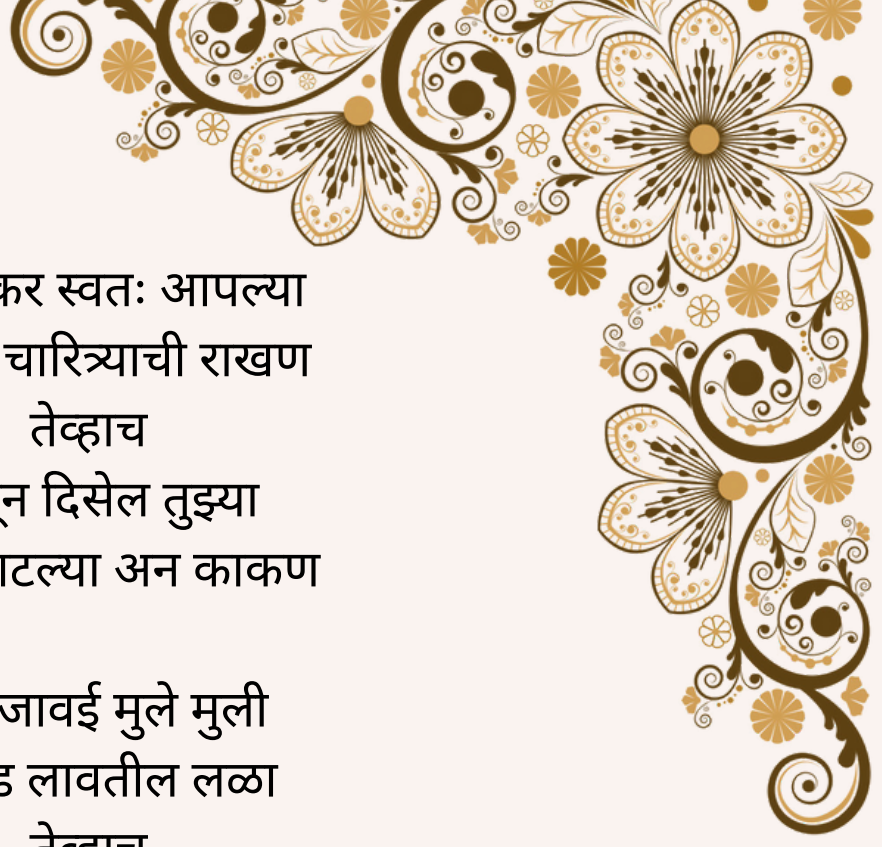 कर स्वतः आपल्या
चारित्र्याची राखण
तेव्हाच
दिसेल तुझ्या
अन काकण
जावई मुले मुली
लावतील लळा
तेव्हाच